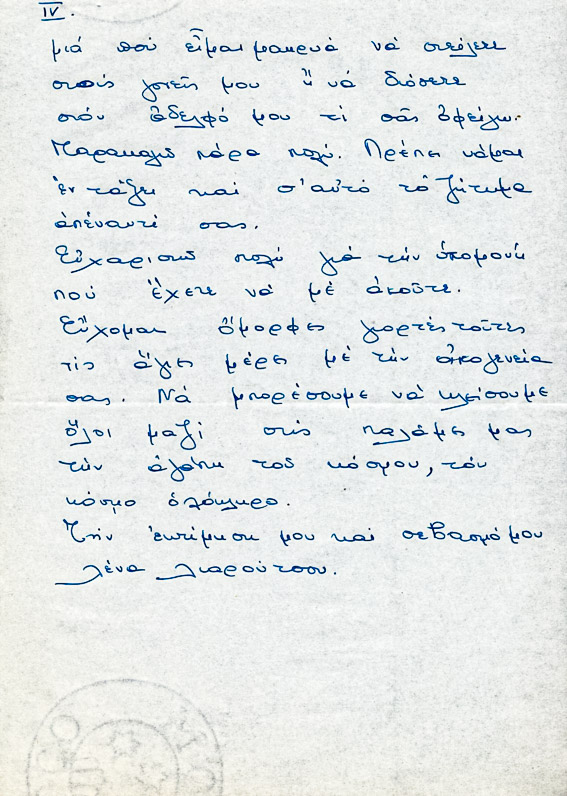 IV.
μιά πού εἶμαι μακρυά νά στείλετε
στούς γονεῖς μου ἤ νά δώσετε
στόν ἀδελφό μου τί σᾶς ὀφείλω.
Παρακαλῶ πάρα πολύ. Πρέπει νἆμαι
ἐν τάξει καί σ' αὐτό τό ζήτημα
ἀπέναντί σας.
Εὐχαριστῶ πολύ γιά τήν ὑπομονή
πού ἔχετε νά μέ ἀκοῦτε.
Εὔχομαι ὄμορφες γιορτές τοῦτες
τίς ἅγιες μέρες μέ τήν οἰκογένεια
σας. Νά μπορέσουμε νά κλείσουμε
ὅλοι μαζί στίς παλάμες μας
τήν ἀγάπη τοῦ κόσμου, τόν
κόσμο ὁλόκληρο.
Τήν ἐκτίμηση μου καί σεβασμό μου
Λένα Λιαρούτσου.